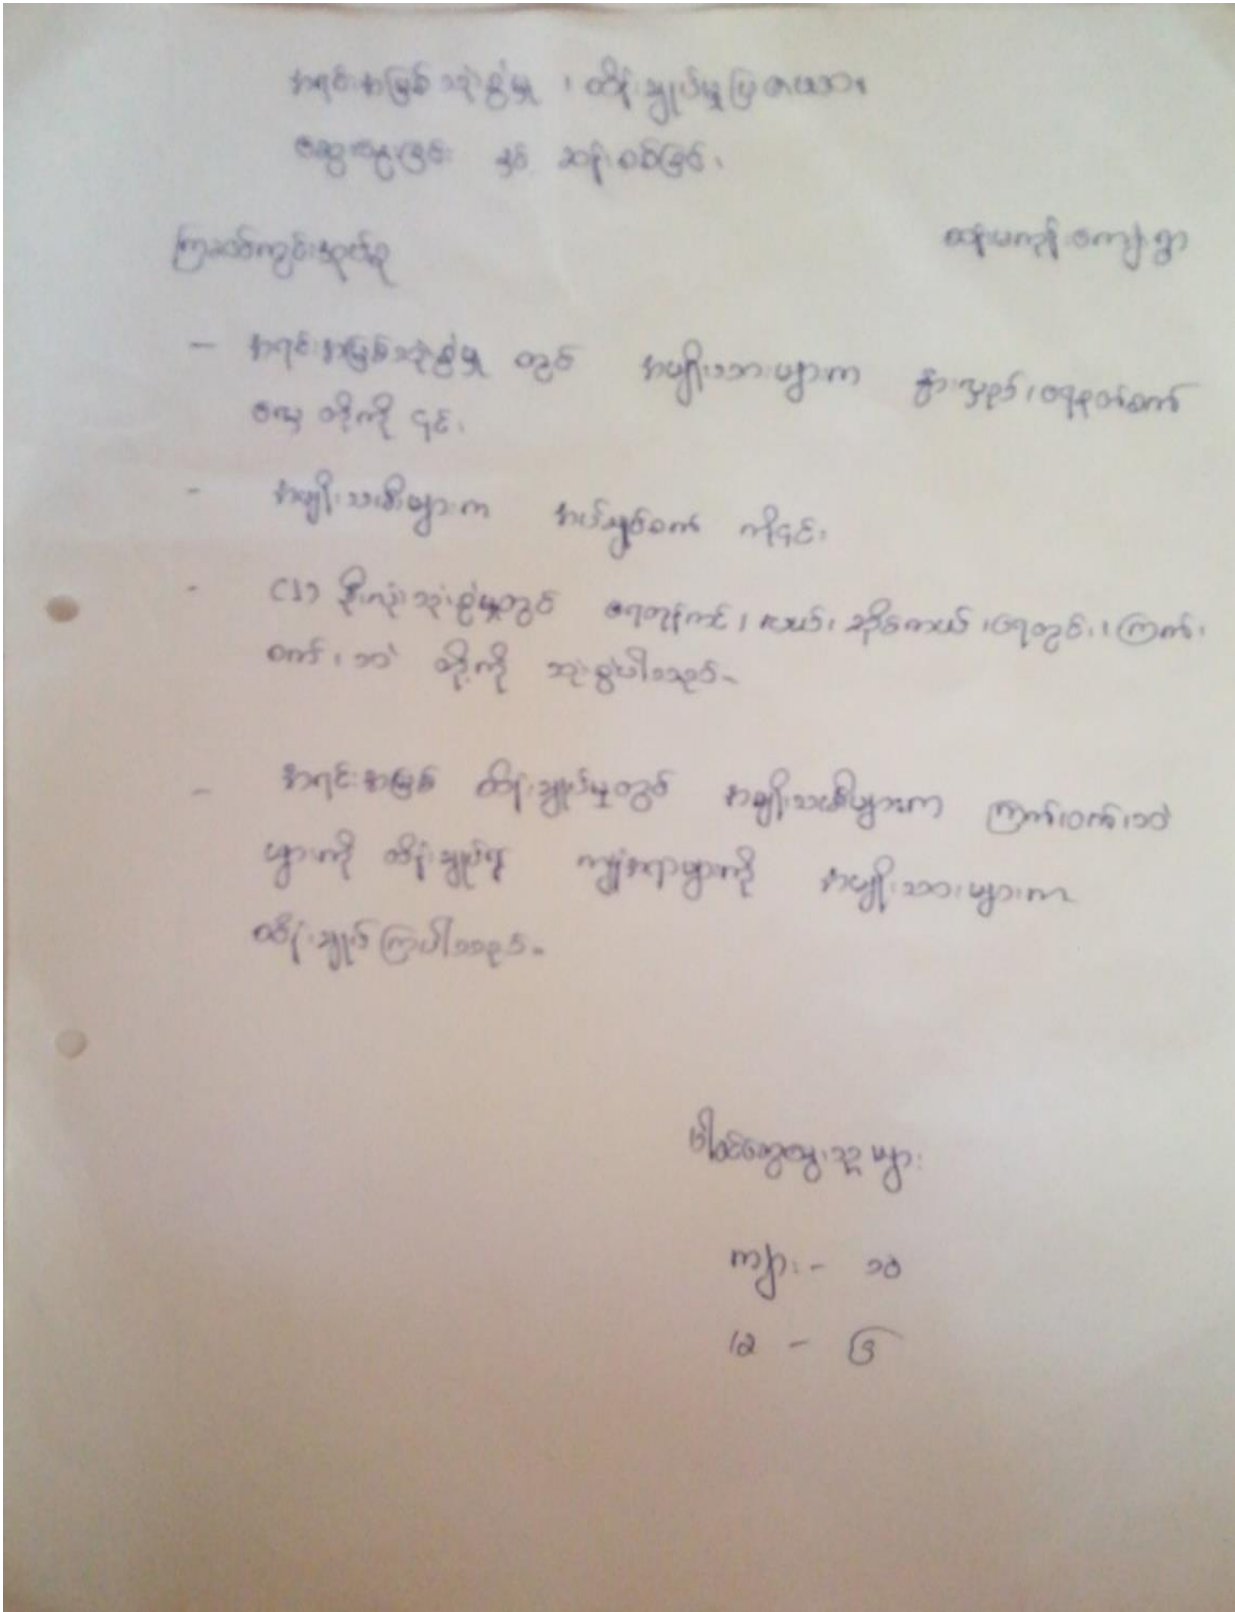 အရင်းအမြစ်သုံးစွဲမှု ၊ ထိန်းချုပ်မှုပြဇယား
ဆွေးနွေးခြင်း နှင့် ဆန်းစစ်ခြင်း
ကြခတ်ကွင်းအုပ်စု
ကျေးရွာ
- အရင်းအမြစ်သုံးစွဲမှု တွင် အမျိုးသားများက နွားလှည်း၊ ရေစုပ်စက်
လှေ တို့ကို ၎င်း၊
- အမျိုးသမီးများက အပ်ချုပ်စက် ကို၎င်း၊
- (၂) ဦးလုံး သုံးစွဲမှုတွင် ရေတွန်ကင်၊ ဆိုင်ကယ်၊ ရေတွင်း၊ ကြက်၊
ဝက်၊ ဘဲ တို့ကို သုံးစွဲပါသည်။
- အရင်းအမြစ် ထိန်းချုပ်မှုတွင် အမျိုးသမီးများက ကြက်၊ဝက်၊ဘဲ
များကို ထိန်းချုပ်၍ ကျန်ရာများကို အမျိုးသားများက
ထိန်းချုပ်ကြပါသည်။
ပါဝင်ဆွေးနွေးသူများ
ကျား - ၁၀
မ - ၆